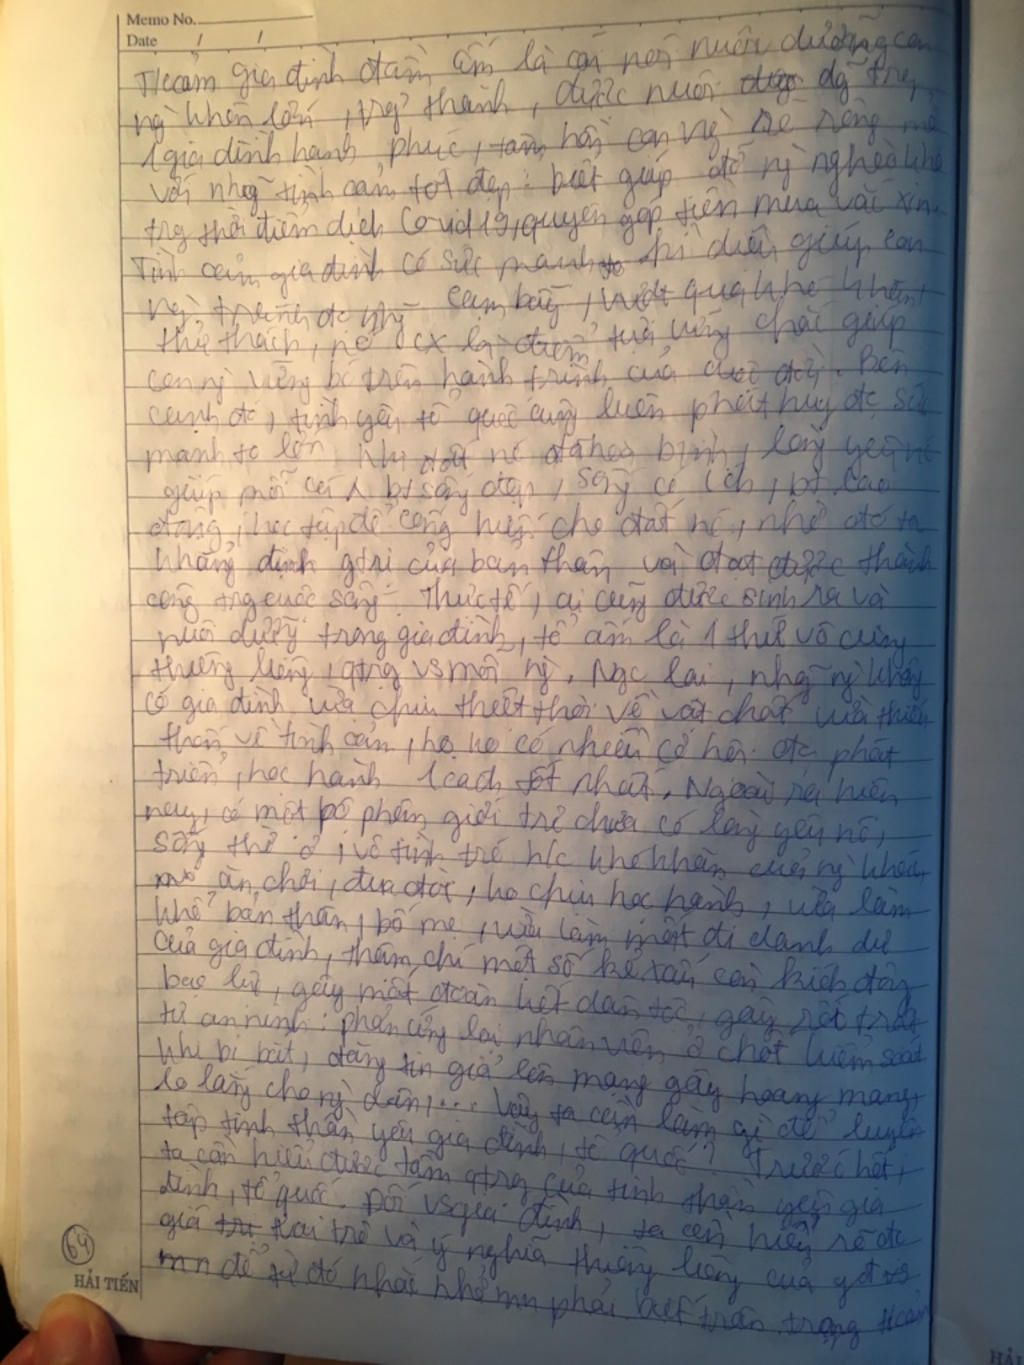 Memo No.
Date / /
Tcảm gia đình đầm ấm là cái nôi nuôi dưỡng con
ng` khôn lớn, trg thành, được nuôi dg trg
1 gia đình hạnh phúc, tâm hồn con ng` sẽ rộng mở
với nhg~ tình cảm tốt đẹp: biết giúp đỡ ng` nghèo khổ
trg thời điểm dịch Covid 19, quyên góp tiền mua vắc xin...
Tình cảm gia đình có sức mạnh kì diệu giúp con
ng` tránh đc cạm bẫy, vượt qua khó khăn,
thử thách, nó cx là điểm tựa vững chãi giúp
con ng` vững bc trên hành trình của cuộc đời. Bên
cạnh đó, tình yêu tổ quốc cũng luôn phát huy đc sức
mạnh to lớn. Khi đất nc đã hoà bình, lòng yêu nc
giúp mỗi cá bt sống đẹp, sống có ích, bt lao
động, học tập để cống hiến cho đất nc, nhờ đó ta
khẳng định gtrị của bản thân và đạt được thành
công trg cuộc sống. Thực tế, ai cũng được sinh ra và
nuôi dưỡng trong gia đình, tổ ấm là 1 thứ vô cùng
thiêng liêng, qtrg vs mỗi ng`. Ngc lại, nhg~ ng` không
có gia đình vừa chịu thiệt thòi về vật chất vừa thiếu
thốn về tình cảm, họ ko có nhiều cơ hội đc phát
triển, học hành 1 cách tốt nhất. Ngoài ra hiện
nay, có một bộ phận giới trẻ chưa có lòng yêu nc,
sống thờ ơ, vô tình trc h/c khó khăn của ng` khác,
ăn chơi, đua đòi, học hành, vừa làm
khổ bản thân, bố mẹ, vừa làm mất đi danh dự
của gia đình, thậm chí một số kẻ xấu còn kích động
bạo lực, gây mất đoàn kết dân tộc, gây rối trật
tự an ninh: phản ứng lại nhân viên ở chốt kiểm soát
khi bị bắt, đăng tin giả lên mạng gây hoang mang,
lo lắng cho ng` dân,... Vậy ta cần làm gì để luyện
tập tinh thần yêu gia đình, tổ quốc? Trước hết,
ta cần hiểu được tầm qtrg của tinh thần yêu gia
đình, tổ quốc. Đối vs gia đình, ta cần hiểu rõ đc
giá vai trò và ý nghĩa thiêng liêng của gđ vs
mn để từ đó nhắc nhở mn phải biết trân trọng tcảm
64
HẢI TIẾN